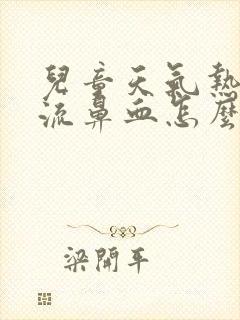 兒童天氣熱
流鼻血怎麼
梁開平